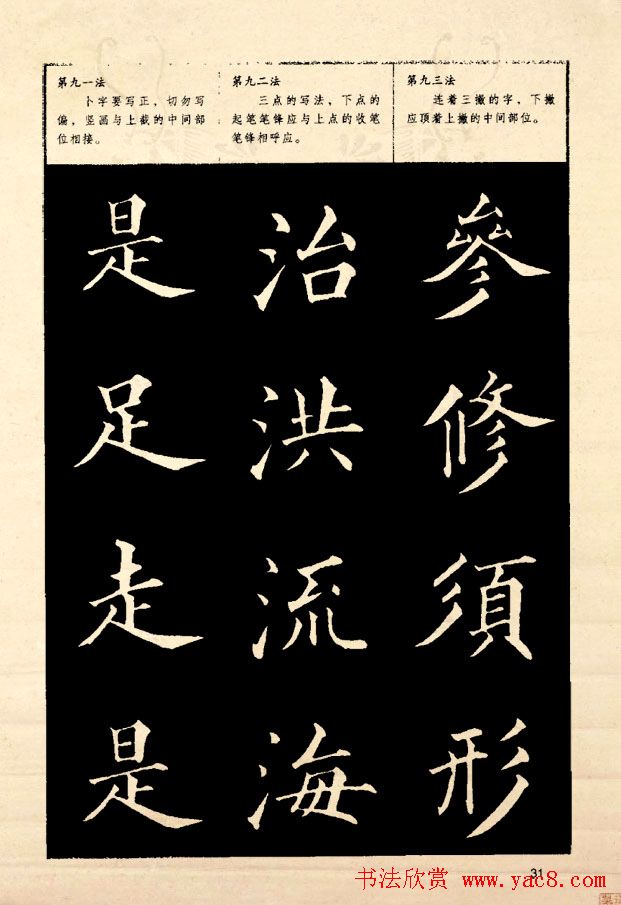 第九一法
卜字要写正，切勿写
偏，竖画与上截的中间部
位相接。
第九二法
三点的写法，下点的
起笔笔锋应与上点的收笔
笔锋相呼应。
第九三法
连着三撇的字，下撇
应顶着上撇的中间部位。
是 治 參
足 洪 修
走 流 須
是 海 形
31
书法欣赏 www.yac8.com